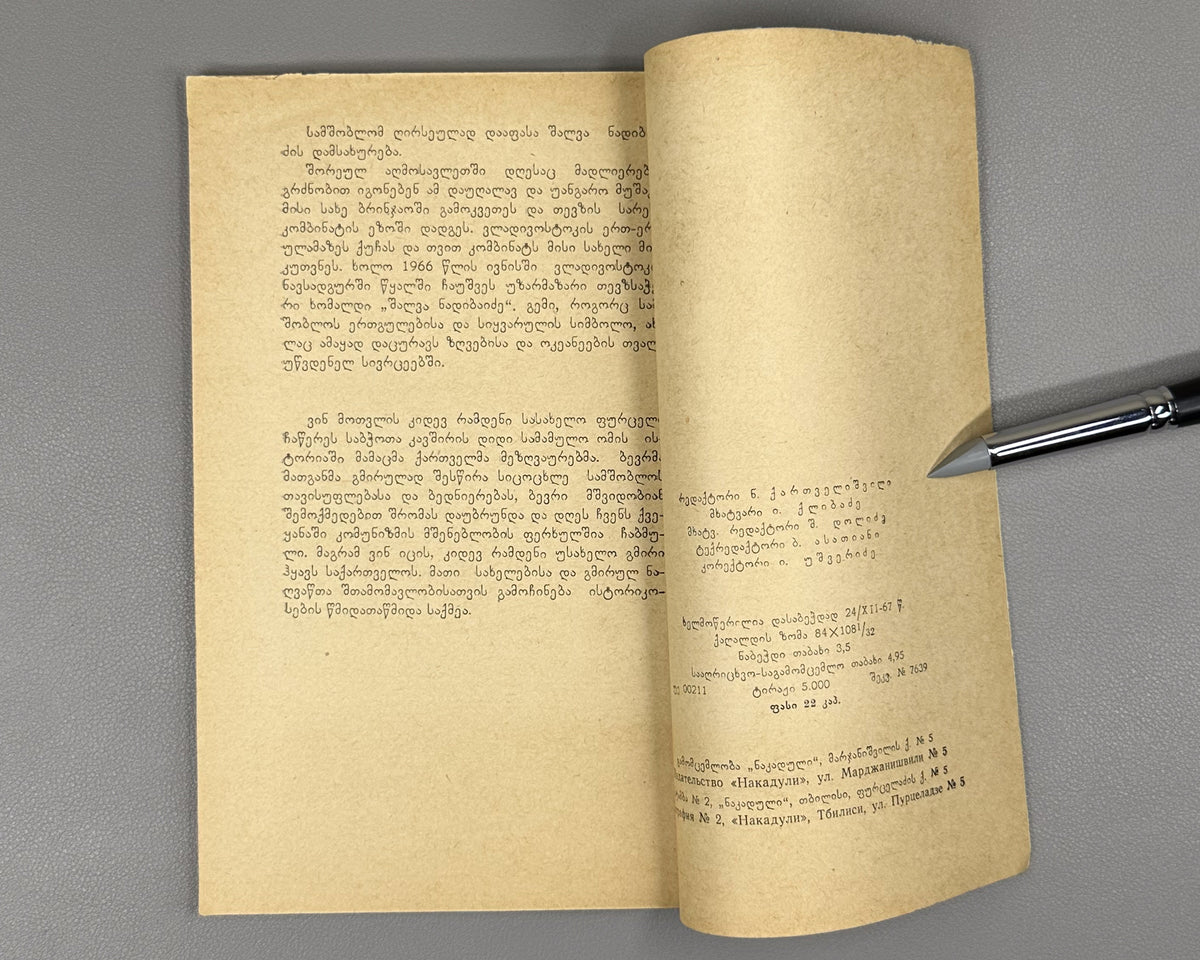 სამშობლომ ღირსეულად დააფასა შალვა ნადიბ
ძის დამსახურება.
შორეულ აღმოსავლეთში დღესაც მადლიერებ
გრძნობით იგონებენ ამ დაუღალავ და უანგარო მუშა
მისი სახე ბრინჯაოში გამოკვეთეს და თევზის სარე
კომბინატის ეზოში დადგეს. ვლადივოსტოკის ერთ-ერ
ულამაზეს ქუჩას და თვით კომბინატს მისი სახელი მი
კუთვნეს. ხოლო 1966 წლის ივნისში ვლადივოსტოკ
ნავსადგურში წყალში ჩაუშვეს უზარმაზარი თევზსაჭ
რი ხომალდი „შალვა ნადიბაიძე“. გემი, როგორც სა
შობლოს ერთგულებისა და სიყვარულის სიმბოლო, ახ
ლაც ამაყად დაცურავს ზღვებისა და ოკეანეების თვალ
უწვდენელ სივრცეებში.
ვინ მოთვლის კიდევ რამდენი სასახელო ფურცელი
ჩაწერეს საბჭოთა კავშირის დიდი სამამულო ომის ის-
ტორიაში მამაცმა ქართველმა მეზღვაურებმა. ბევრმა
მათგანმა გმირულად შესწირა სიცოცხლე სამშობლოს
თავისუფლებასა და ბედნიერებას, ბევრი მშვიდობიან
შემოქმედებით შრომას დაუბრუნდა და დღეს ჩვენს ქვე-
ყანაში კომუნიზმის მშენებლობის ფერხულშია ჩაბმუ-
ლი. მაგრამ ვინ იცის, კიდევ რამდენი უსახელო გმირი
ჰყავს საქართველოს. მათი სახელებისა და გმირულ ნა-
ღვაწთა შთამომავლობისათვის გამოჩინება ისტორიკო-
სების წმიდათაწმიდა საქმეა.
რედაქტორი ნ. ქართველიშვილი
მხატვარი ი. ქლიბაძე
მხატვ. რედაქტორი შ. დოლიძე
ტექრედაქტორი ბ. ასათიანი
კორექტორი ი. უშვერიძე
ხელმოწერილია დასაბეჭდად 24/XII-67 წ.
ქაღალდის ზომა 84×108¹/₃₂
ნაბეჭდი თაბახი 3,5
სააღრიცხვო-საგამომცემლო თაბახი 4,95
00211 ტირაჟი 5.000 შეკვ. № 7639
ფასი 22 კაპ.
გამომცემლობა „ნაკადული“, მარჯანიშვილის ქ. № 5
дательство «Накадули», ул. Марджанишвили № 5
№ 2, „ნაკადული“, თბილისი, ფურცელაძის ქ. № 5
графия № 2, «Накадули», Тбилиси, ул. Пурцеладзе № 5